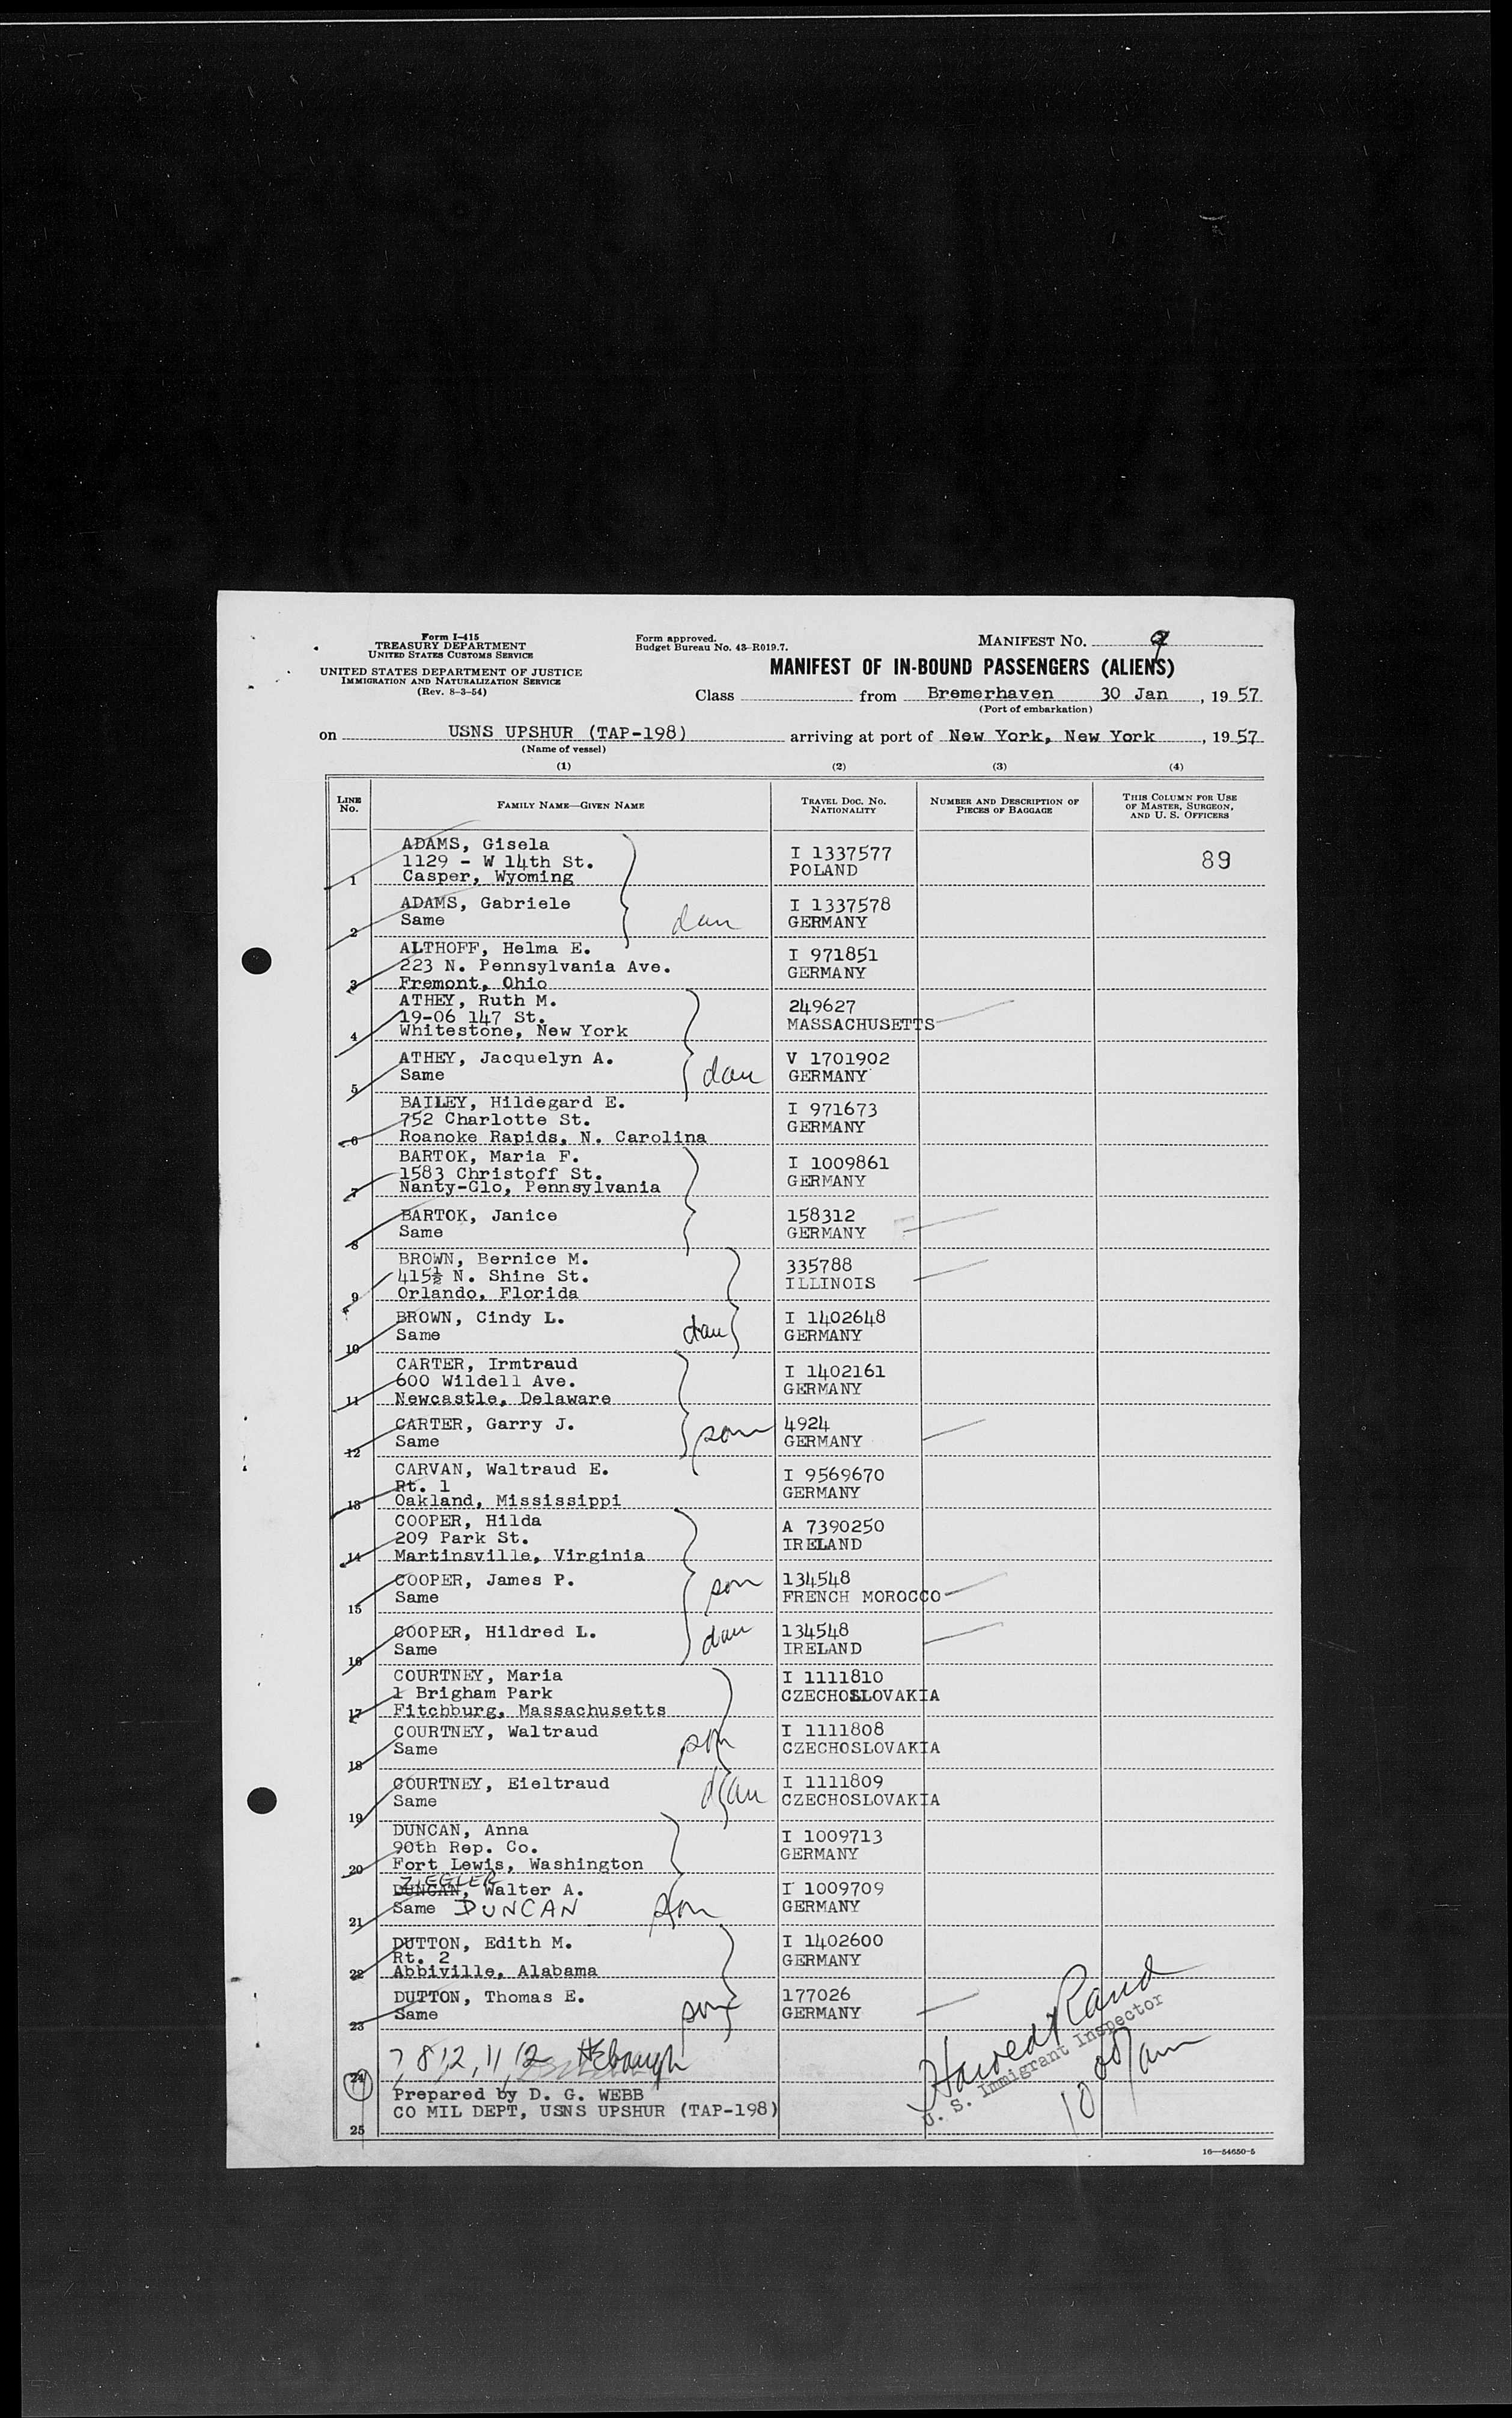 Form I-415
TREASURY DEPARTMENT
UNITED STATES CUSTOMS SERVICE
UNITED STATES DEPARTMENT OF JUSTICE
IMMIGRATION AND NATURALIZATION SERVICE
(Rev. 8-3-54)
Form approved.
Budget Bureau No. 43-R019.7.
MANIFEST NO. 9
MANIFEST OF IN-BOUND PASSENGERS (ALIENS)
Class from Bremerhaven 30 Jan, 1957
(Port of embarkation)
on USNS UPSHUR (TAP-198) arriving at port of New York, New York, 1957
(Name of vessel)
(1) (2) (3) (4)
LINE NO. FAMILY NAME—GIVEN NAME TRAVEL DOC. NO. NATIONALITY NUMBER AND DESCRIPTION OF PIECES OF BAGGAGE THIS COLUMN FOR USE OF MASTER, SURGEON, AND U. S. OFFICERS
ADAMS, Gisela
1129 - W 14th St. I 1337577 89
1 Casper, Wyoming POLAND
ADAMS, Gabriele I 1337578
2 Same dau GERMANY
ALTHOFF, Helma E. I 971851
223 N. Pennsylvania Ave. GERMANY
3 Fremont, Ohio
ATHEY, Ruth M. 249627
19-06 147 St. MASSACHUSETTS
4 Whitestone, New York
ATHEY, Jacquelyn A. V 1701902
5 Same dau GERMANY
BAILEY, Hildegard E. I 971673
752 Charlotte St. GERMANY
6 Roanoke Rapids, N. Carolina
BARTOK, Maria F. I 1009861
1583 Christoff St. GERMANY
7 Nanty-Glo, Pennsylvania
BARTOK, Janice 158312
8 Same GERMANY
BROWN, Bernice M. 335788
415½ N. Shine St. ILLINOIS
9 Orlando, Florida
BROWN, Cindy L. I 1402648
10 Same dau GERMANY
CARTER, Irmtraud I 1402161
600 Wildell Ave. GERMANY
11 Newcastle, Delaware
CARTER, Garry J. son 4924
12 Same GERMANY
CARVAN, Waltraud E. I 9569670
Rt. 1 GERMANY
13 Oakland, Mississippi
COOPER, Hilda A 7390250
209 Park St. IRELAND
14 Martinsville, Virginia
COOPER, James P. son 134548
15 Same FRENCH MOROCCO
COOPER, Hildred L. dau 134548
16 Same IRELAND
COURTNEY, Maria I 1111810
1 Brigham Park CZECHOSLOVAKIA
17 Fitchburg, Massachusetts
COURTNEY, Waltraud I 1111808
18 Same son CZECHOSLOVAKIA
COURTNEY, Eieltraud I 1111809
19 Same dau CZECHOSLOVAKIA
DUNCAN, Anna I 1009713
90th Rep. Co. GERMANY
20 Fort Lewis, Washington
ZIEGLER
DUNCAN, Walter A. I 1009709
21 Same DUNCAN son GERMANY
DUTTON, Edith M. I 1402600
Rt. 2 GERMANY
22 Abbiville, Alabama
DUTTON, Thomas E. 177026
23 Same son GERMANY
24
Prepared by D. G. WEBB
CO MIL DEPT, USNS UPSHUR (TAP-198)
25
Rand
U. S. Immigrant Inspector
10 am
16—54650-5